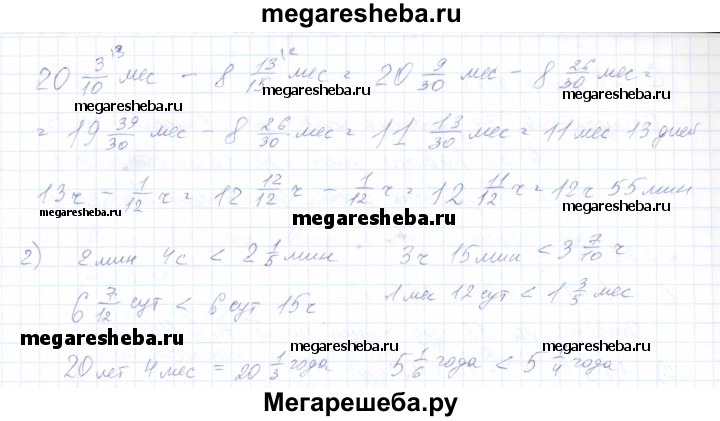 megaresheba.ru
20 3/10 ¹³ мес - 8 13/15 ¹² мес = 20 9/30 мес - 8 26/30 мес =
megaresheba.ru megaresheba.ru megaresheba.ru
= 19 39/30 мес - 8 26/30 мес = 11 13/30 мес = 11 мес 13 дней
megaresheba.ru megaresheba.ru megaresheba.ru
13 ч - 1/12 ч = 12 12/12 ч - 1/12 ч = 12 11/12 ч = 12 ч 55 мин
megaresheba.ru megaresheba.ru megaresheba.ru
2) 2 мин 4 с < 2 1/5 мин 3 ч 15 мин < 3 7/10 ч
megaresheba.ru megaresheba.ru
6 7/12 сут < 6 сут 15 ч 1 мес 12 сут < 1 3/5 мес
megaresheba.ru megaresheba.ru megaresheba.ru
20 лет 4 мес = 20 1/3 года 5 1/6 года < 5 1/4 года
megaresheba.ru megaresheba.ru
Мегарешеба.ру